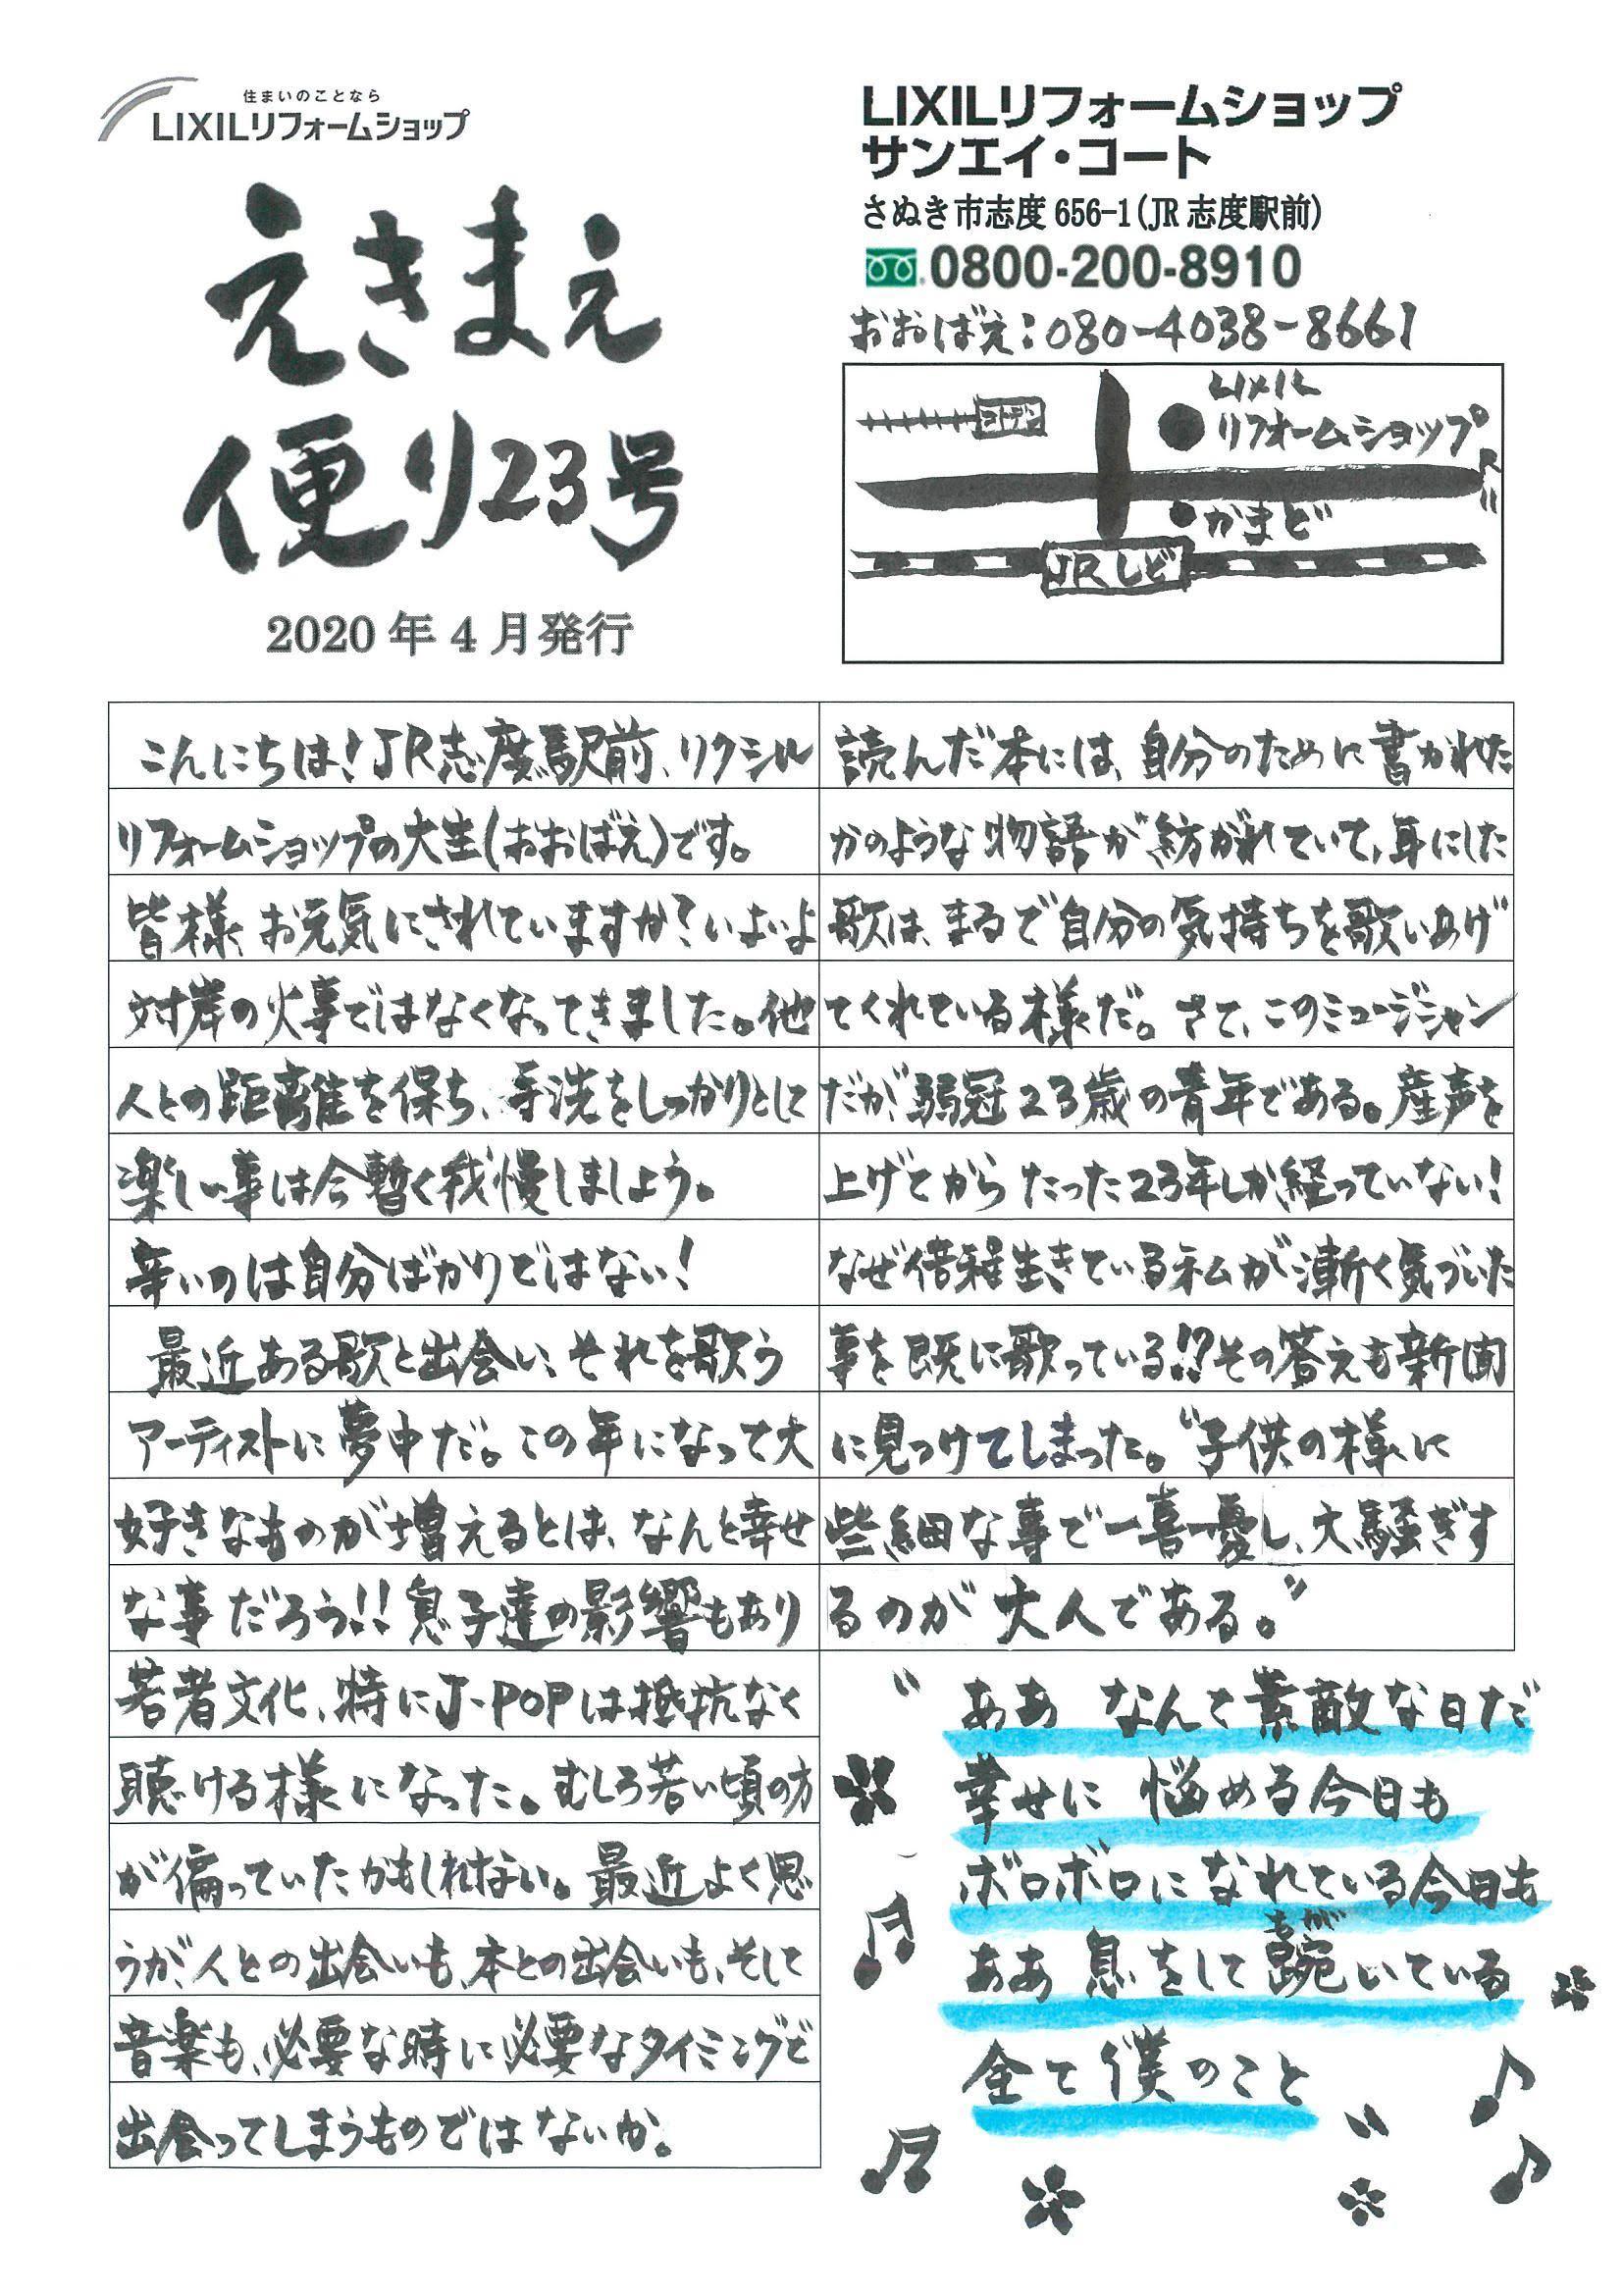 住まいのことなら
LIXILリフォームショップ
えきまえ
便り23号
2020年4月発行
LIXILリフォームショップ
サンエイ・コート
さぬき市志度656-1(JR志度駅前)
0800-200-8910
おおばえ:080-4038-8661
LIXIL
リフォームショップ
コトデン
R11
かまど
JRしど
こんにちは!JR志度駅前、リクシル
リフォームショップの大生(おおばえ)です。
皆様、お元気にされていますか?いよいよ
対岸の火事ではなくなってきました。他
人との距離を保ち、手洗をしっかりとして
楽しい事は今暫く我慢しましょう。
辛いのは自分ばかりではない!
最近ある歌と出会い、それを歌う
アーティストに夢中だ。この年になって大
好きなものが増えるとは、なんと幸せ
な事だろう!!息子達の影響もあり
若者文化、特にJ-POPは抵抗なく
聴ける様になった。むしろ若い頃の方
が偏っていたかもしれない。最近よく思
うが、人との出会いも、本との出会いも、そして
音楽も、必要な時に必要なタイミングで
出会ってしまうものではないか。
読んだ本には、自分のために書かれた
かのような物語が紡がれていて、耳にした
歌は、まるで自分の気持ちを歌いあげ
てくれている様だ。さて、このミュージシャン
だが、弱冠23歳の青年である。産声を
上げてからたった23年しか経っていない!
なぜ倍程生きている私が漸く気づいた
事を既に歌っている!?その答えも新聞
に見つけてしまった。〝子供の様に
些細な事で一喜一憂し、大騒ぎす
るのが大人である。〟
〝ああ なんて素敵な日だ
幸せに 悩める今日も
ボロボロになれている今日も
ああ 息をして踠(もが)いている
全て僕のこと〟